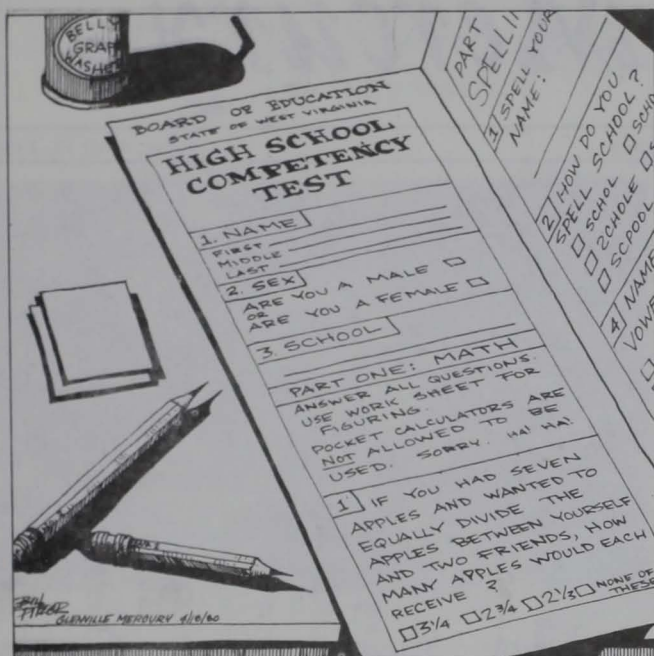 BELLY
GRAPE
WASHER
BOARD OF EDUCATION
STATE OF WEST VIRGINIA
HIGH SCHOOL
COMPETENCY
TEST
1. NAME
FIRST
MIDDLE
LAST
2. SEX
ARE YOU A MALE
OR
ARE YOU A FEMALE
3. SCHOOL
PART ONE: MATH
ANSWER ALL QUESTIONS.
USE WORK SHEET FOR
FIGURING.
POCKET CALCULATORS ARE
NOT ALLOWED TO BE
USED. SORRY. HA! HA!
1 IF YOU HAD SEVEN
APPLES AND WANTED TO
EQUALLY DIVIDE THE
APPLES BETWEEN YOURSELF
AND TWO FRIENDS, HOW
MANY APPLES WOULD EACH
RECEIVE ?
□ 3 1/4 □ 2 3/4 □ 2 1/3 □ NONE OF
THESE
PART
SPELLI
1 SPELL YOUR
NAME:
2 HOW DO YOU
SPELL SCHOOL ?
□ SCHOL □ SCHO
□ 2CHOLE □ S
□ SCPOOL
4 NAME
VOWE
GLENVILLE MERCURY 4/10/80